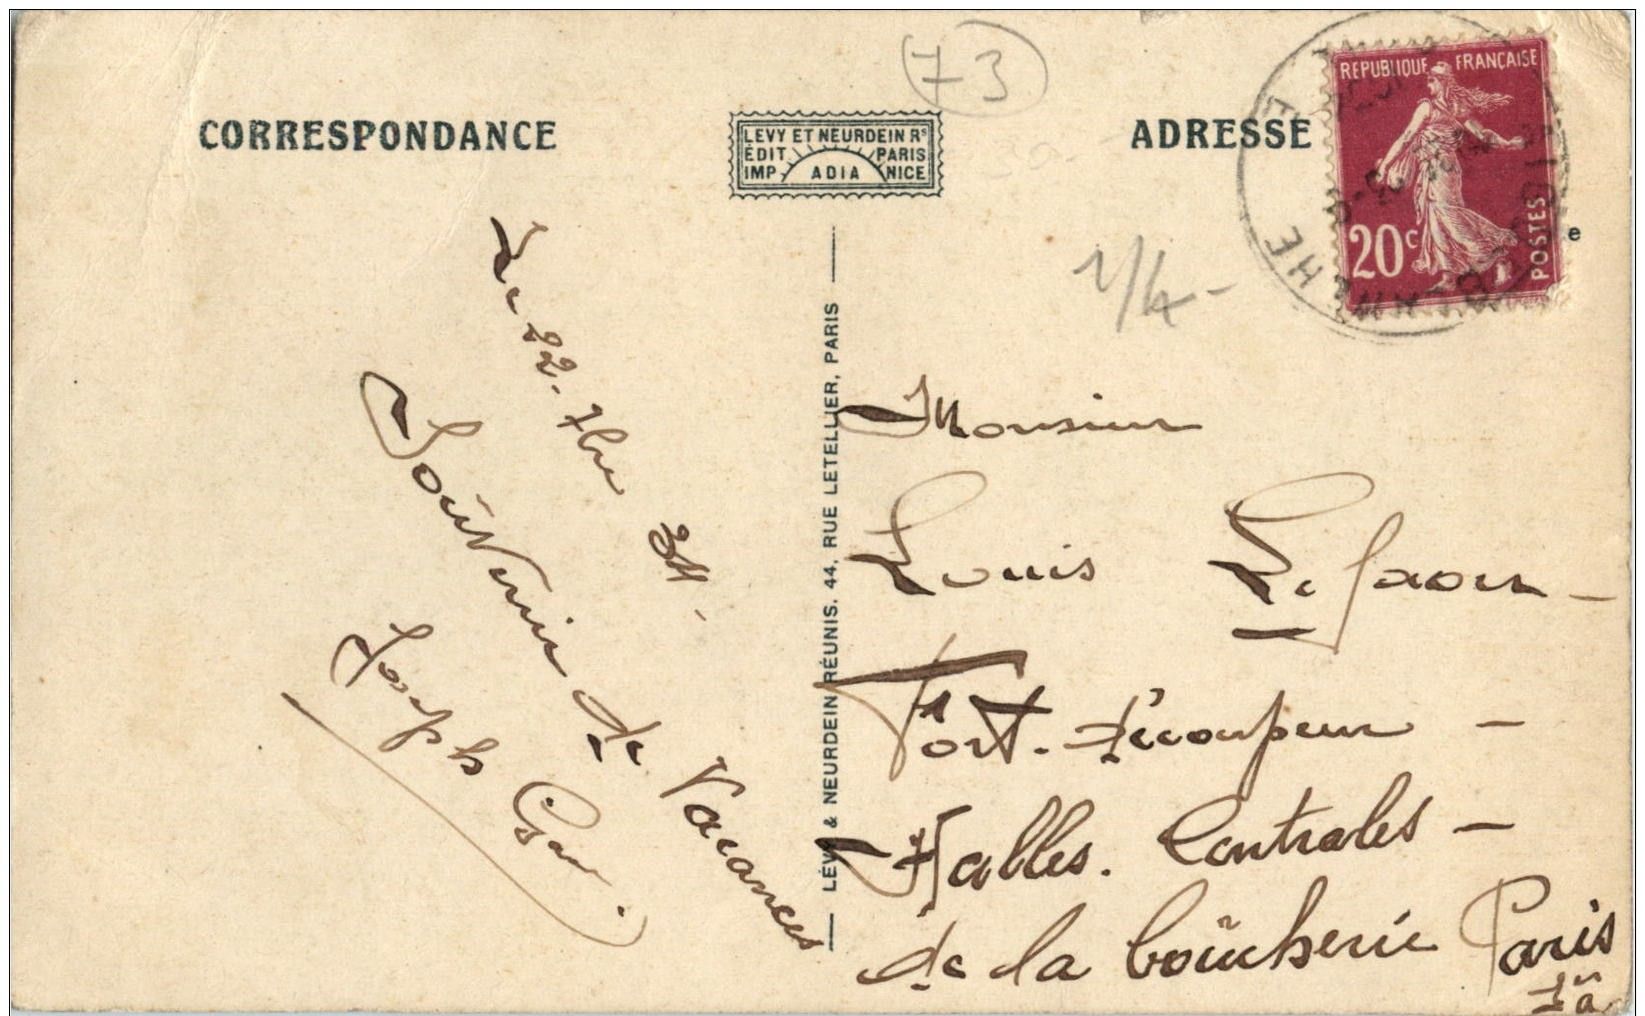 73
CORRESPONDANCE
LEVY ET NEURDEIN Rs
ÉDIT PARIS
IMP ADIA NICE
ADRESSE
REPUBLIQUE FRANÇAISE
20c
POSTES
e
1/4-
Le 22-7bre 34-
Souvenir de Vacances
Joseph
LÉVY & NEURDEIN RÉUNIS. 44, RUE LETELLIER, PARIS
Monsieur
Louis
Fort-découpeur -
Halles. Centrales -
de la boucherie Paris